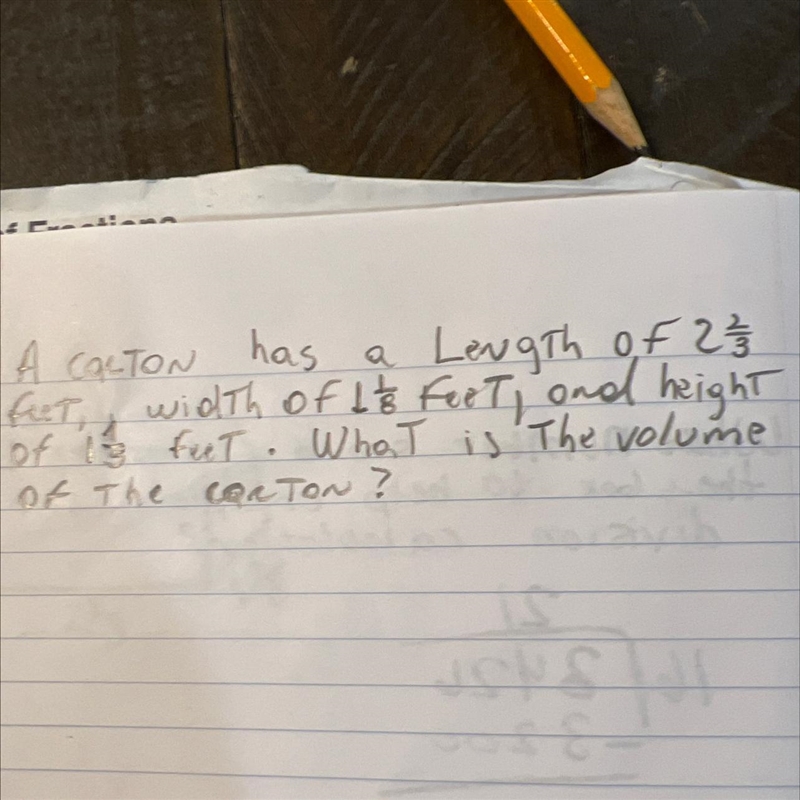 f Fractions
A carton has a Length of 2 2/3
feet, width of 1 1/8 feet, and height
of 1 1/3 feet. What is The volume
of The carton?
21